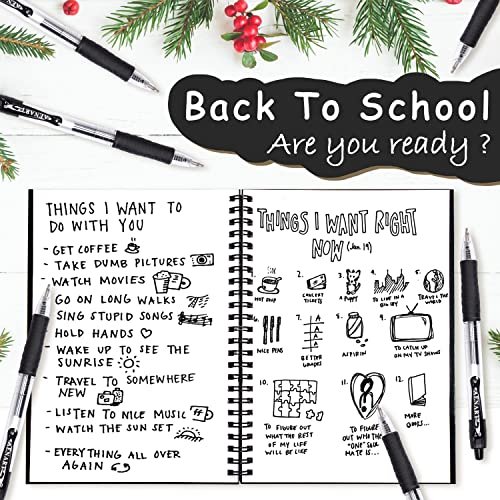 Back To School
Are you ready ?
THINGS I WANT TO
DO WITH YOU
- GET COFFEE
- TAKE DUMB PICTURES
- WATCH MOVIES
GO ON LONG WALKS
SING STUPID SONGS
HOLD HANDS
- WAKE UP TO SEE THE
SUNRISE
- TRAVEL TO SOMEWHERE
NEW
- LISTEN TO NICE MUSIC
- WATCH THE SUN SET
- EVERYTHING ALL OVER
AGAIN
THINGS I WANT RIGHT
NOW (Jan 19)
1.
2.
3.
4.
5.
HOT SOUP
CONCERT
TICKETS
A PUPPY
TO LIVE IN A
BIG CITY
TRAVEL THE
WORLD
6.
7.
8.
9.
NICE PENS
BETTER
GRADES
ASPIRIN
TO CATCH UP
ON MY TV SHOWS
10.
11.
12.
TO FIGURE OUT
WHAT THE REST
OF MY LIFE
WILL BE LIKE
TO FIGURE
OUT WHO THE
"ONE" SOUL
MATE IS...
MORE
BOOKS...